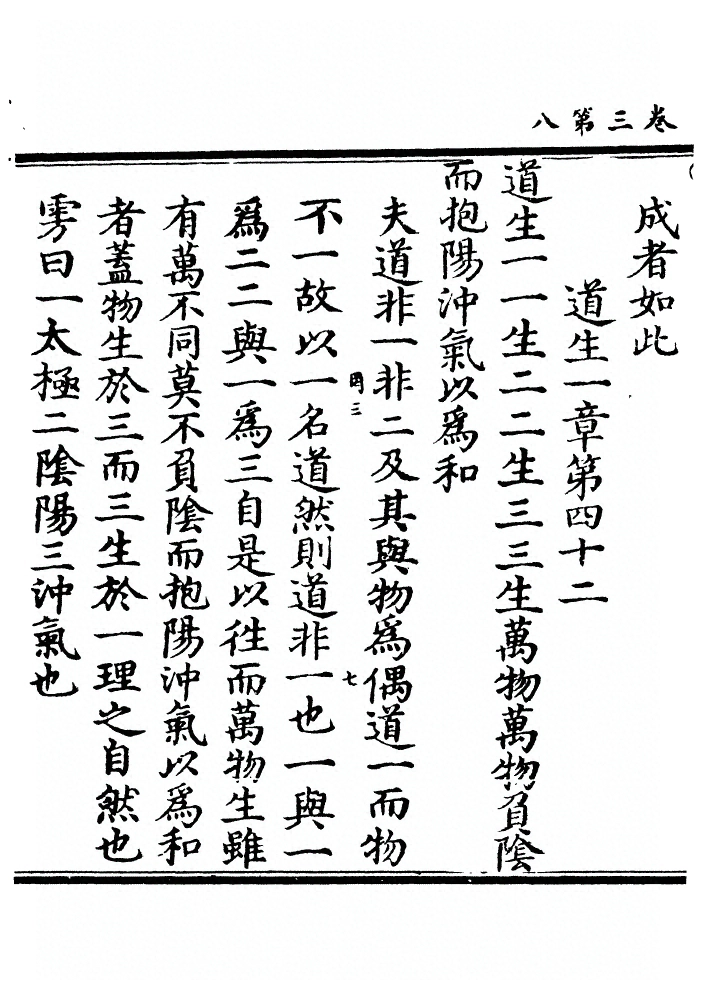 卷三第八
成者如此
道生一章第四十二
道生一一生二二生三三生萬物萬物負陰
而抱陽沖氣以爲和
夫道非一非二及其與物爲偶道一而物
不一故以一名道然則道非一也一與一
爲二二與一爲三自是以徃而萬物生雖
有萬不同莫不負陰而抱陽沖氣以爲和
者蓋物生於三而三生於一理之自然也
雱曰一太極二陰陽三沖氣也
罔三
七